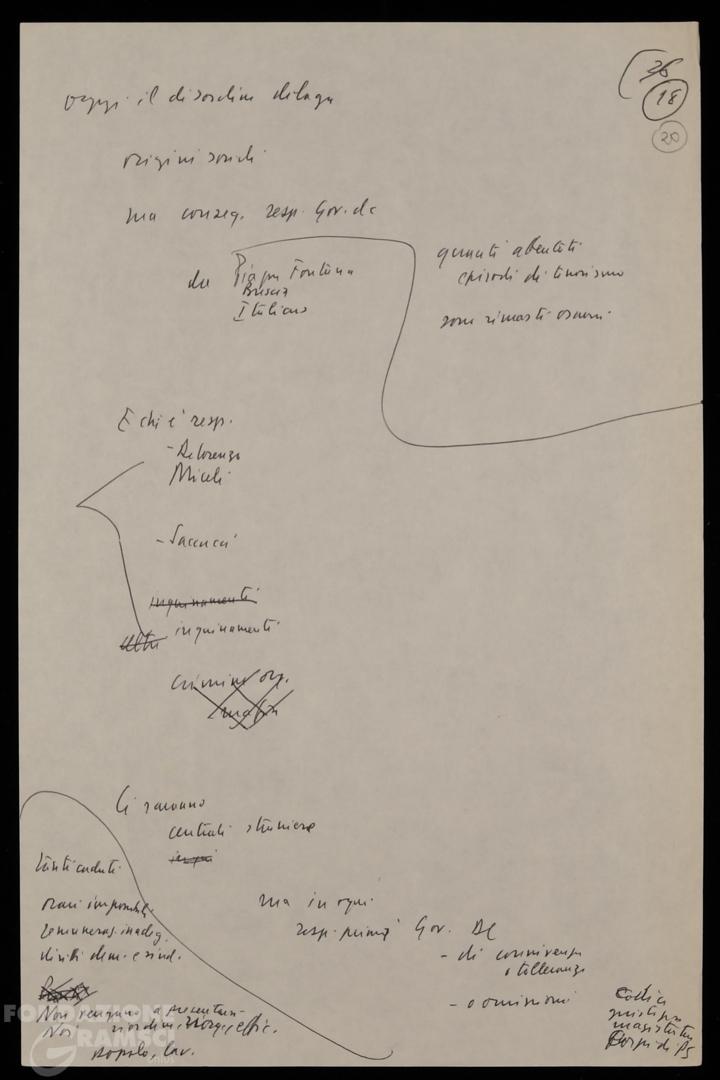 26
18
20
oggi il disordine dilaga
origini sociali
ma conseg. resp. Gov. dc
da Piazza Fontana
Brescia
Italicus
quanti attentati
episodi di terrorismo
sono rimasti oscuri.
E chi è resp.
- De Lorenzo
Miceli
- Saccucci
inquinamenti
altri inquinamenti
crimine org.
mafia
Ci saranno
centrali straniere
ma in ogni
resp. prima Gov. DC
- di connivenza
o tolleranza
- o omissioni
tanti caduti
orari impossibili
remuneraz. inadeg.
diritti dem. e sind.
Non vengano a presentarsi
Noi riordino, riorg., effic.
popolo, lav.
Codici
giustizia
magistratura
Corpi di PS
FONDAZIONE
GRAMSCI